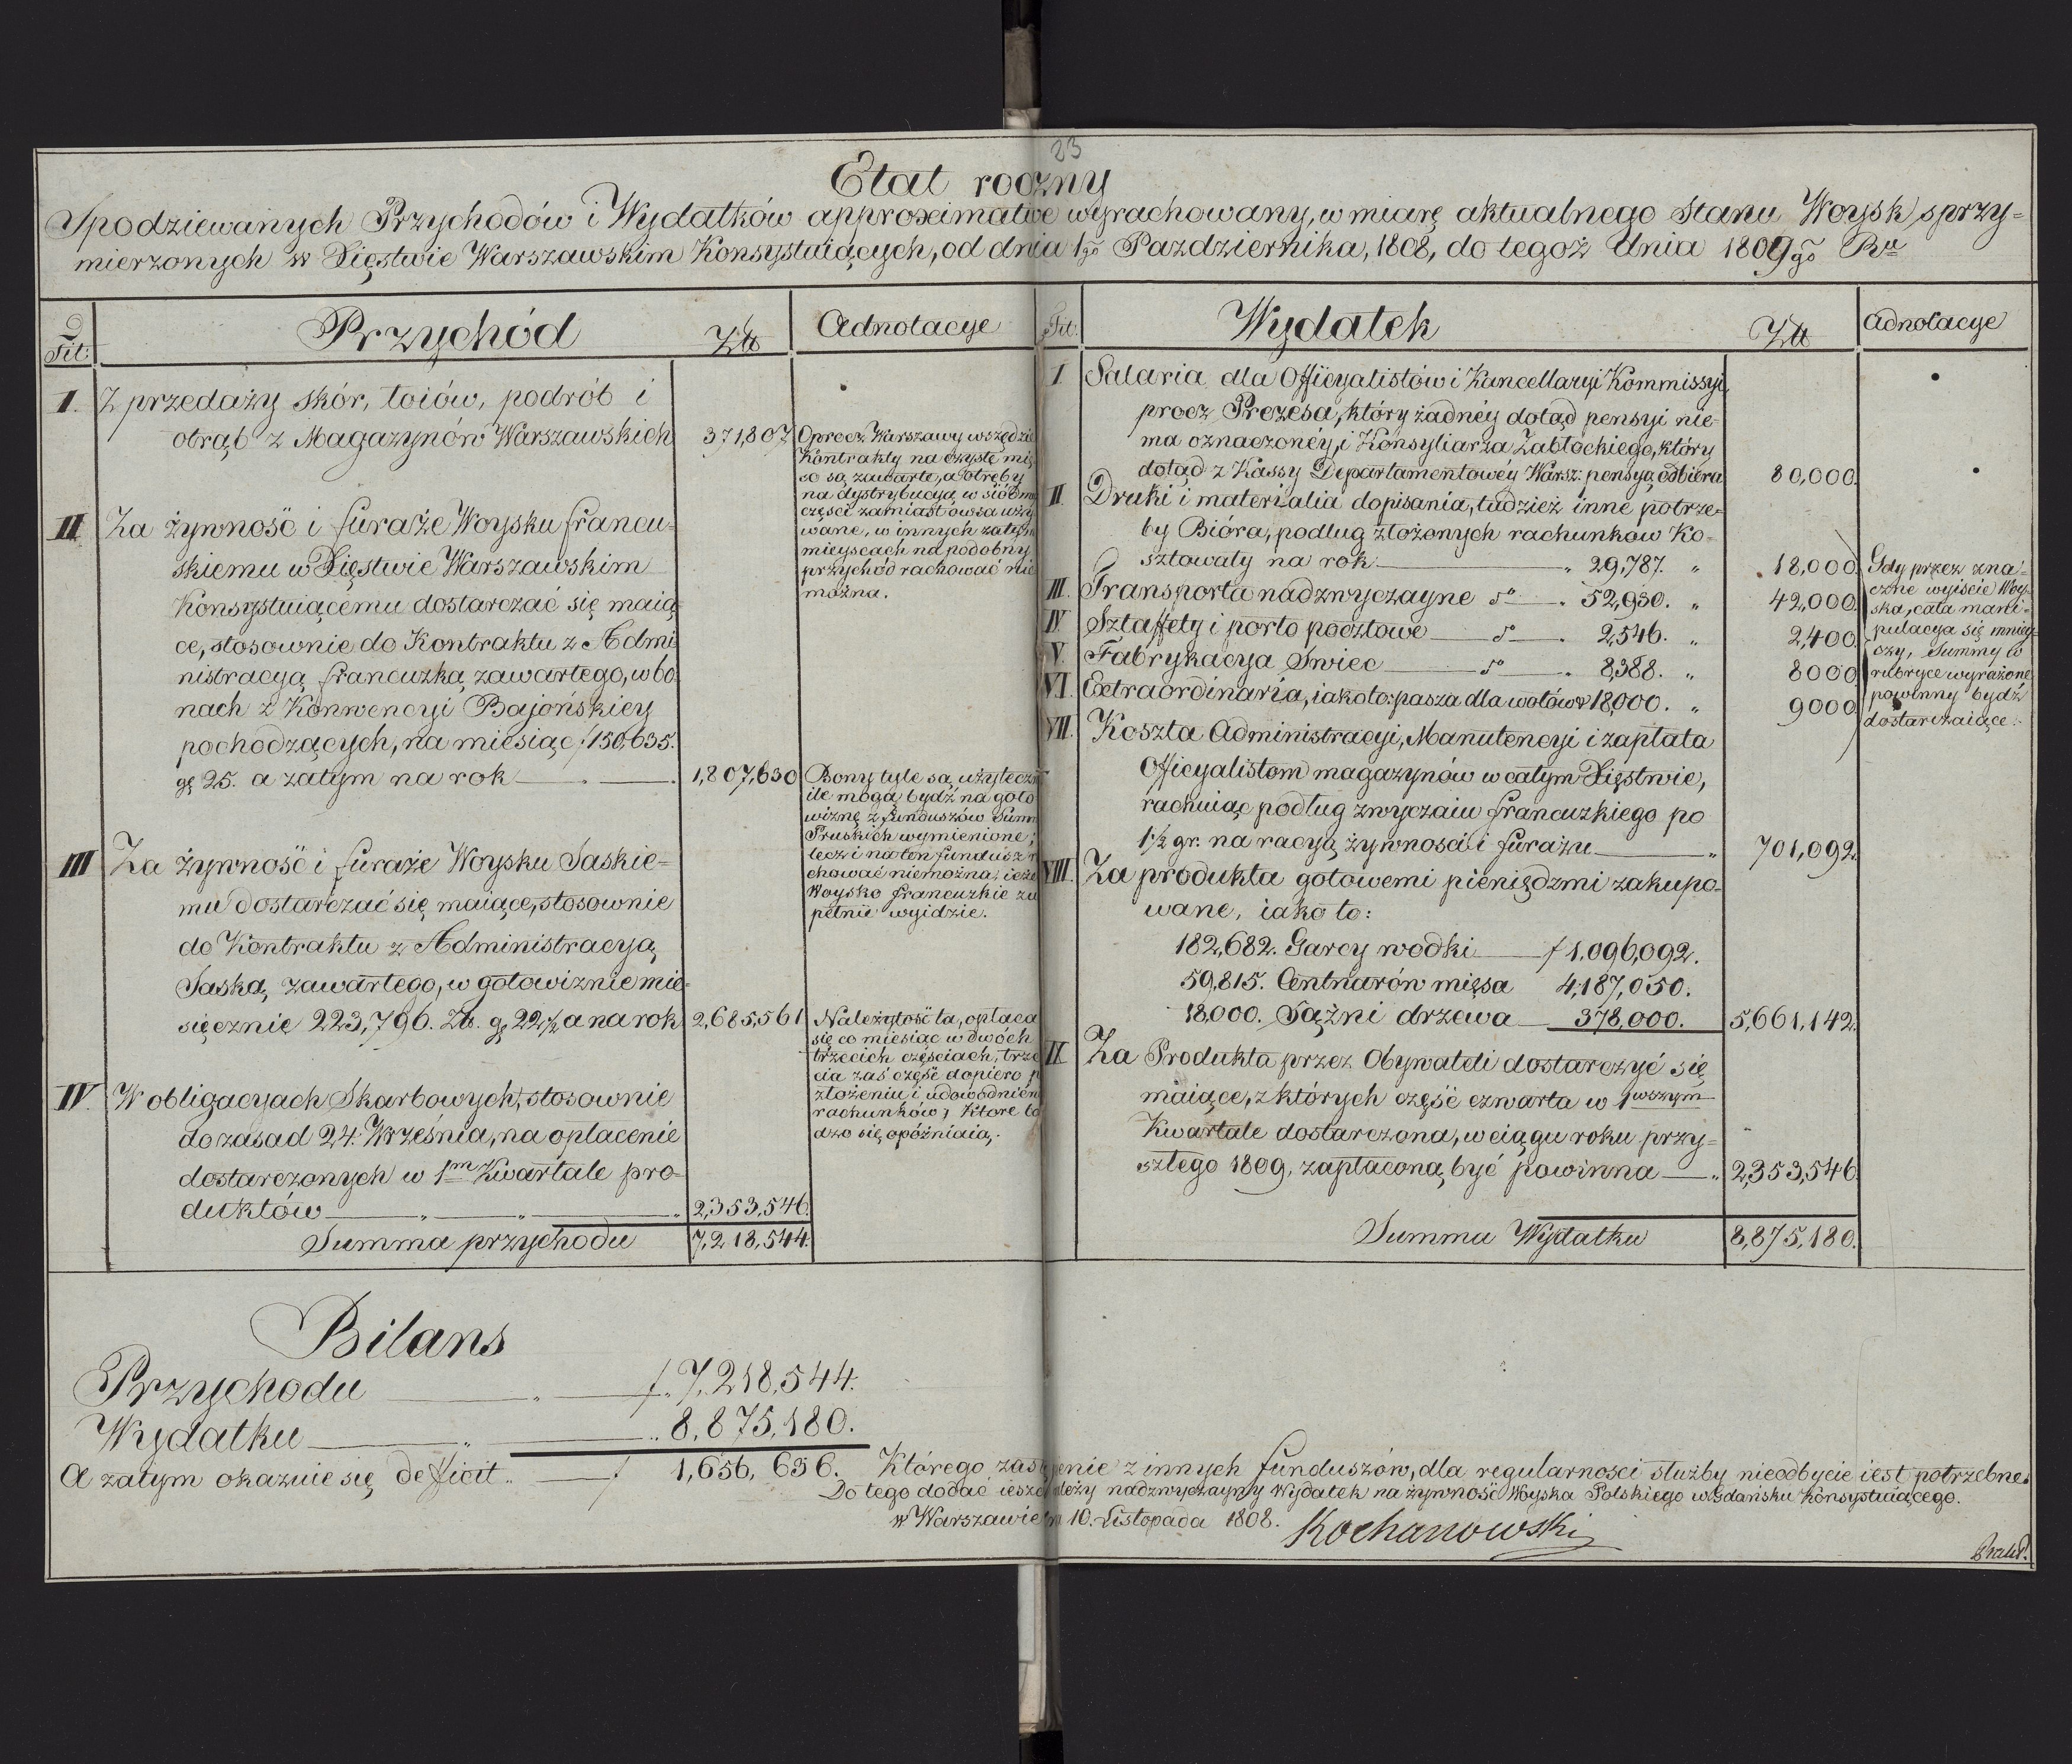 23
Etat roczny
Spodziewanych Przychodów i Wydatków approximative wyrachowany, w miarę aktualnego Stanu Woysk sprzy=
mierzonych w Xięstwie Warszawskim Konsystuiących, od dnia 1go Pazdziernika, 1808, do tegoż dnia 1809go Ru
Tit: Przychód Złt Adnotacye
I. Z przedaży skór, łoiów, podrób i
otrąb z Magazynów Warszawskich 371,807
Oprocz Warszawy wszędzie
Kontrakty na czyste mię
so są zawarte, a otręby
na dystrybucyą w siódmey
częsci zamiast owsa uży
wane, w innych zatym
mieyscach na podobny
przychód rachować nie
można.
II Za żywność i furaże Woysku francu=
skiemu w Xięstwie Warszawskim
Konsystuiącemu dostarczać się maią
ce, stosownie do Kontraktu z Admi
nistracyą francuzką zawartego, w bo
nach z Konwencyi Bajońskiey
pochodzących, na miesiąc f 150,635.
gę 25. a zatym na rok 1,807,630
Bony tyle są użyteczne
ile mogą bydź na goto
wiznę z funduszów Summ
Pruskich wymienione;
lecz i na ten fundusz ra
chować niemożna, ieżeli
Woysko francuzkie zu
pełnie wyidzie.
III Za żywność i furaże Woysku Saskie=
mu dostarczać się maiące, stosownie
do Kontraktu z Administracyą
Saską zawartego, w gotowiznie mie=
sięcznie 223,796. Zł. gę 22½ a na rok 2,685,561
Należytość ta, opłaca
się co miesiąc w dwóch
trzecich częściach, trze
cia zaś część dopiero po
złożeniu i udowodnieniu
rachunków, które ba
dzo się opóźniaią.
IV. W obligacyach Skarbowych, stosownie
do zasad 24. Września, na opłacenie
dostarczonych w 1m Kwartale pro=
duktów 2,353,546.
Summa przychodu 7,218,544.
Tit: Wydatek Złt Adnotacye
I. Salaria dla Officyalistów i Kancellaryi Kommissyi,
procz Prezesa, który żadnéy dotąd pensyi nie=
ma oznaczonéy, i Konsyliarza Zabłockiego, który
dotąd z Kassy Departamentowéy Warsz: pensyą odbiera 80,000.
II. Druki i materialia dopisania, tudzież inne potrze=
by Bióra, podług złożonych rachunków Ko=
sztowały na rok 29,787. " 18,000
III. Transporta nadzwyczayne do 52,930. " 42,000
IV. Sztaffety i porto pocztowe do 2,546. " 2,400
V. Fabrykacya Swiec do 8,388. " 8000
VI. Extraordinaria, iako to: pasza dla wołów 18,000. " 9000
Gdy przez zna=
czne wyiście Woy=
ska, cała mani=
pulacya się mniey=
szy, Summy w
rubryce wyrażone
powinny bydź
dostarczaiące.
VII. Koszta Administracyi, Manutencyi i zapłata
Officyalistom magazynów w całym Xięstwie,
rachuiąc podług zwyczaiu francuzkiego po
1½ gr. na racyą żywności i furażu 701,092.
VIII. Za produkta gotowemi pieniędzmi zakupo=
wane, iako to:
182,682. Garcy wodki f 1,096,092.
59,815. Centnarów mięsa 4,187,050.
18,000. Sążni drzewa 378,000. 5,661,142.
IX. Za Produkta przez Obywateli dostarczyć się
maiące, z których część czwarta w 1wszym
Kwartale dostarczona, w ciągu roku przy=
szłego 1809, zapłaconą być powinna 2,353,546.
Summa Wydatku 8,875,180.
Bilans
Przychodu f. 7,218,544.
Wydatku 8,875,180.
A zatym okazuie się defficit f 1,656,636. Którego zastąpienie z innych funduszów, dla regularnosci służby nieodbycie iest potrzebne.
Do tego dodać ieszcze należy nadzwyczayny Wydatek na żywność Woyska Polskiego w Gdańsku Konsystuiącego.
w Warszawie 10. Listopada 1808. Kochanowski